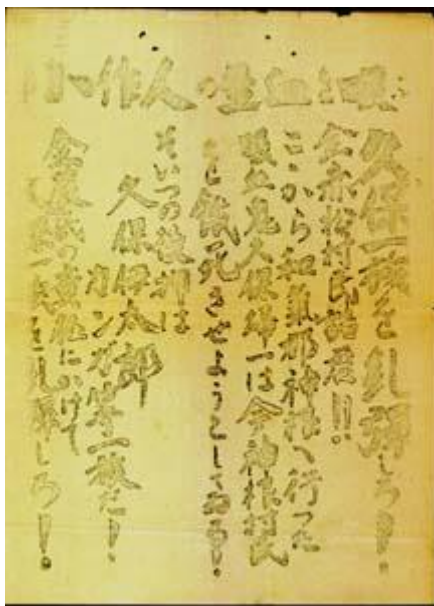 小作人の生血を吸ふ
久保一族を糺弾しろ！
村民諸君!!
ここから和気郡神根へ行った
吸血鬼久保一は今神根村民
を餓死させようとしてゐる！
そいつの後押は
久保伊太郎
等一族だ！
全農民のにかけて
一族を糺弾しろ！